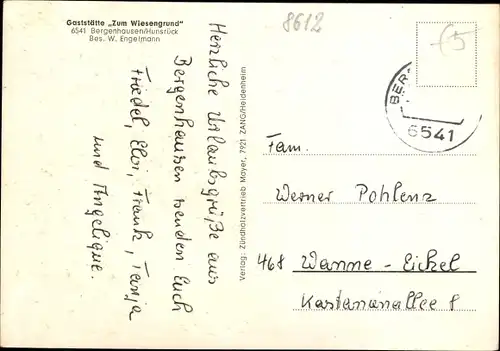 Gaststätte „Zum Wiesengrund"
6541 Bergenhausen/Hunsrück
Bes. W. Engelmann
8612
Herzliche Urlaubsgrüße aus
Bergenhausen senden Euch
Friedel, Elvi, Frank, Tanja
und Angelique.
Verlag: Zündholzvertrieb Mayer, 7921 ZANG/Heidenheim
BER
6541
Fam.
Werner Pohlenz
468 Wanne-Eickel
Kastanienallee 8